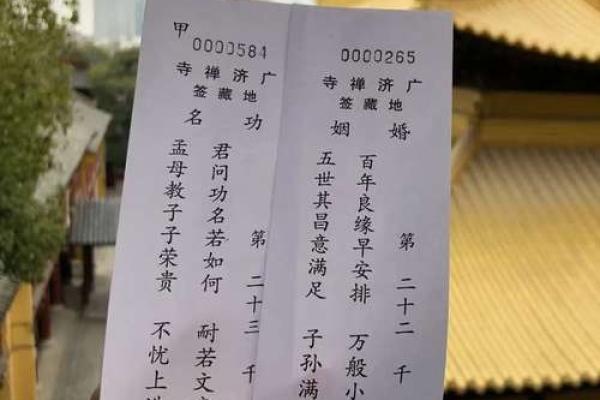 甲
0000584
广济禅寺
地藏签
功名
第二十三 千
君问功名若如何 耐若文
孟母教子子荣贵 不忧上
0000265
广济禅寺
地藏签
婚姻
第二十二 千
百年良缘早安排 万般小
五世其昌意满足 子孙满